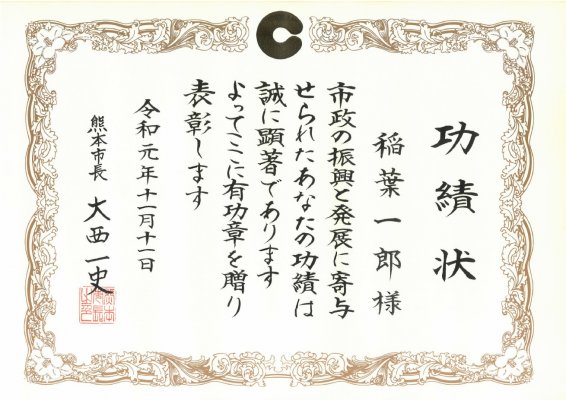 功績状
稲葉一郎様
市政の振興と発展に寄与
せられたあなたの功績は
誠に顕著であります
よってここに有功章を贈り
表彰します
令和元年十一月十一日
熊本市長 大西一史